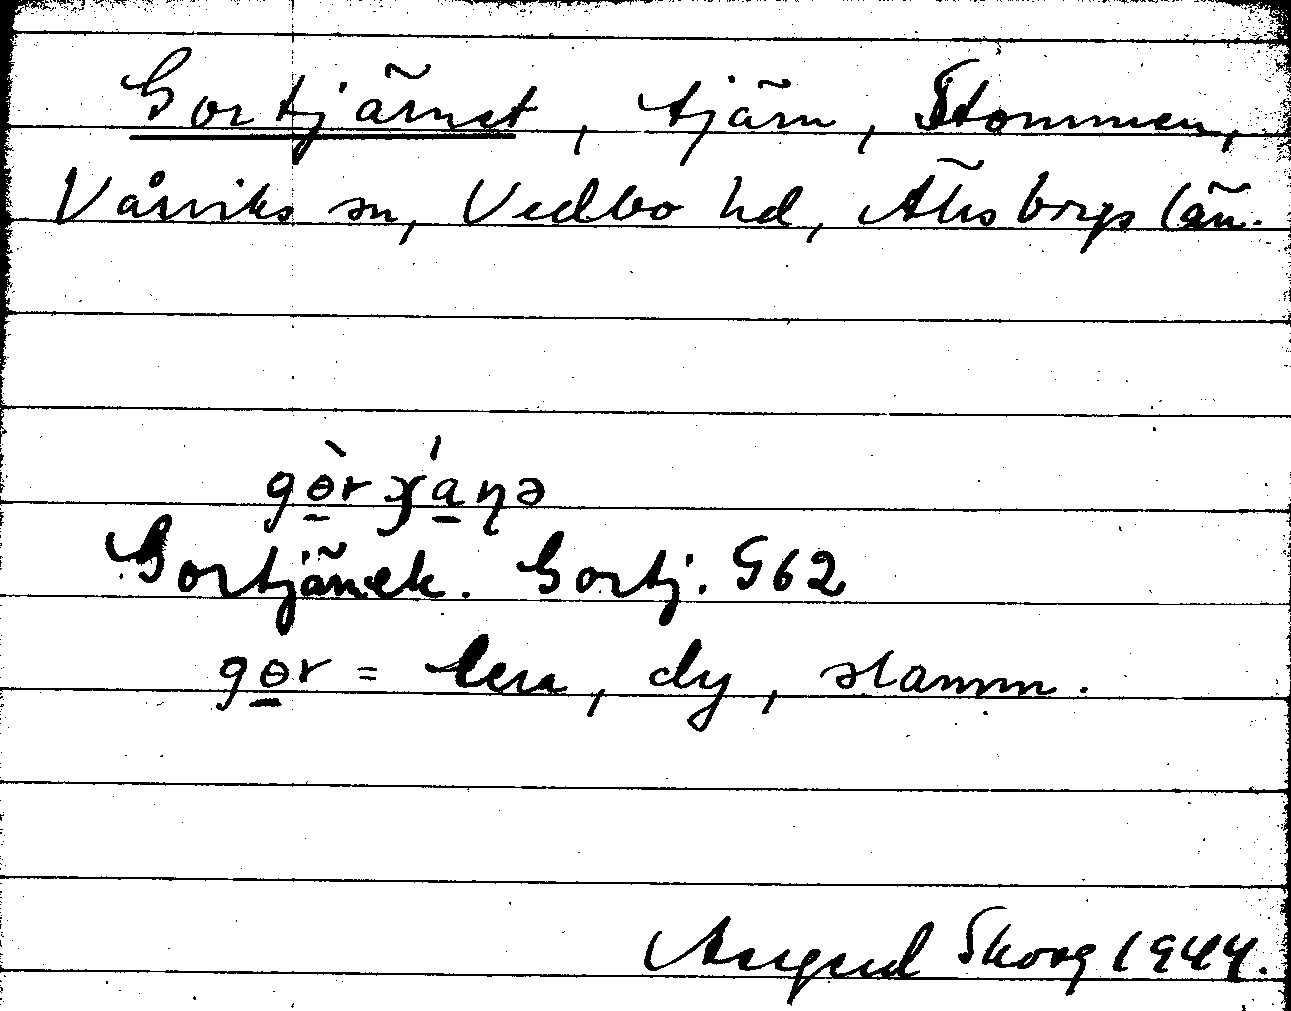 Gortjärnet, tjärn, Stommen,
Vårviks sn, Vedbo hd, Älvsborgs län.
gɵ̀rɟ́aɳə
Gortjän ek. Gortj. G62
gɵr = lera, dy, slamm.
Skoog 1944.